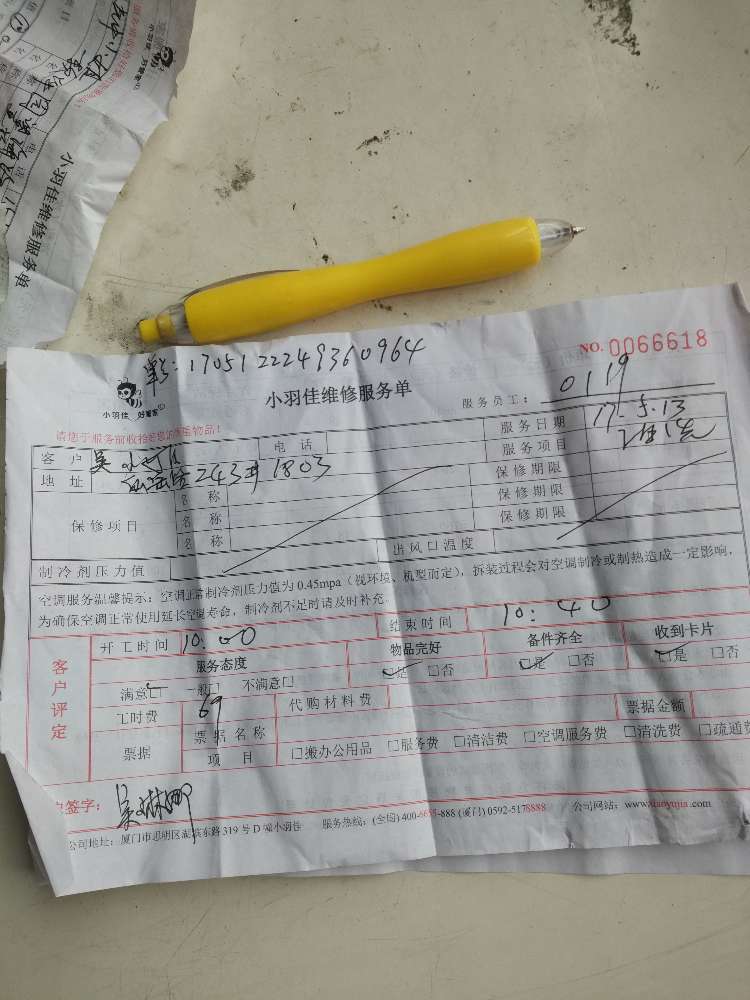 小羽佳维修服务单
单号:1705122249360964
NO. 0066618
小羽佳 好管家
小羽佳维修服务单
服务员工: 0119
请您于服务前收拾好您的贵重物品!
客户 吴小姐 电话 服务日期 17.5.13
地址 243# 1803 服务项目
保修项目 名称 保修期限
名称 保修期限
名称 保修期限
制冷剂压力值 出风口温度
空调服务温馨提示:空调正常制冷剂压力值为 0.45mpa(视环境、机型而定),拆装过程会对空调制冷或制热造成一定影响,
为确保空调正常使用延长空调寿命,制冷剂不足时请及时补充。
客户评定
开工时间 10:00 结束时间 10:40
服务态度 物品完好 备件齐全 收到卡片
满意□ 一般□ 不满意□ □是 □否 □是 □否 □是 □否
工时费 69 代购材料费 票据金额
票据 票据名称
项目 □搬办公用品 □服务费 □清洁费 □空调服务费 □清洗费 □疏通费
签字: 吴琳娜
公司地址:厦门市思明区湖滨东路 319 号 D 幢小羽佳 服务热线:(全国) 400-6655-888 (厦门) 0592-5178888 公司网站:www.xiaoyujia.com